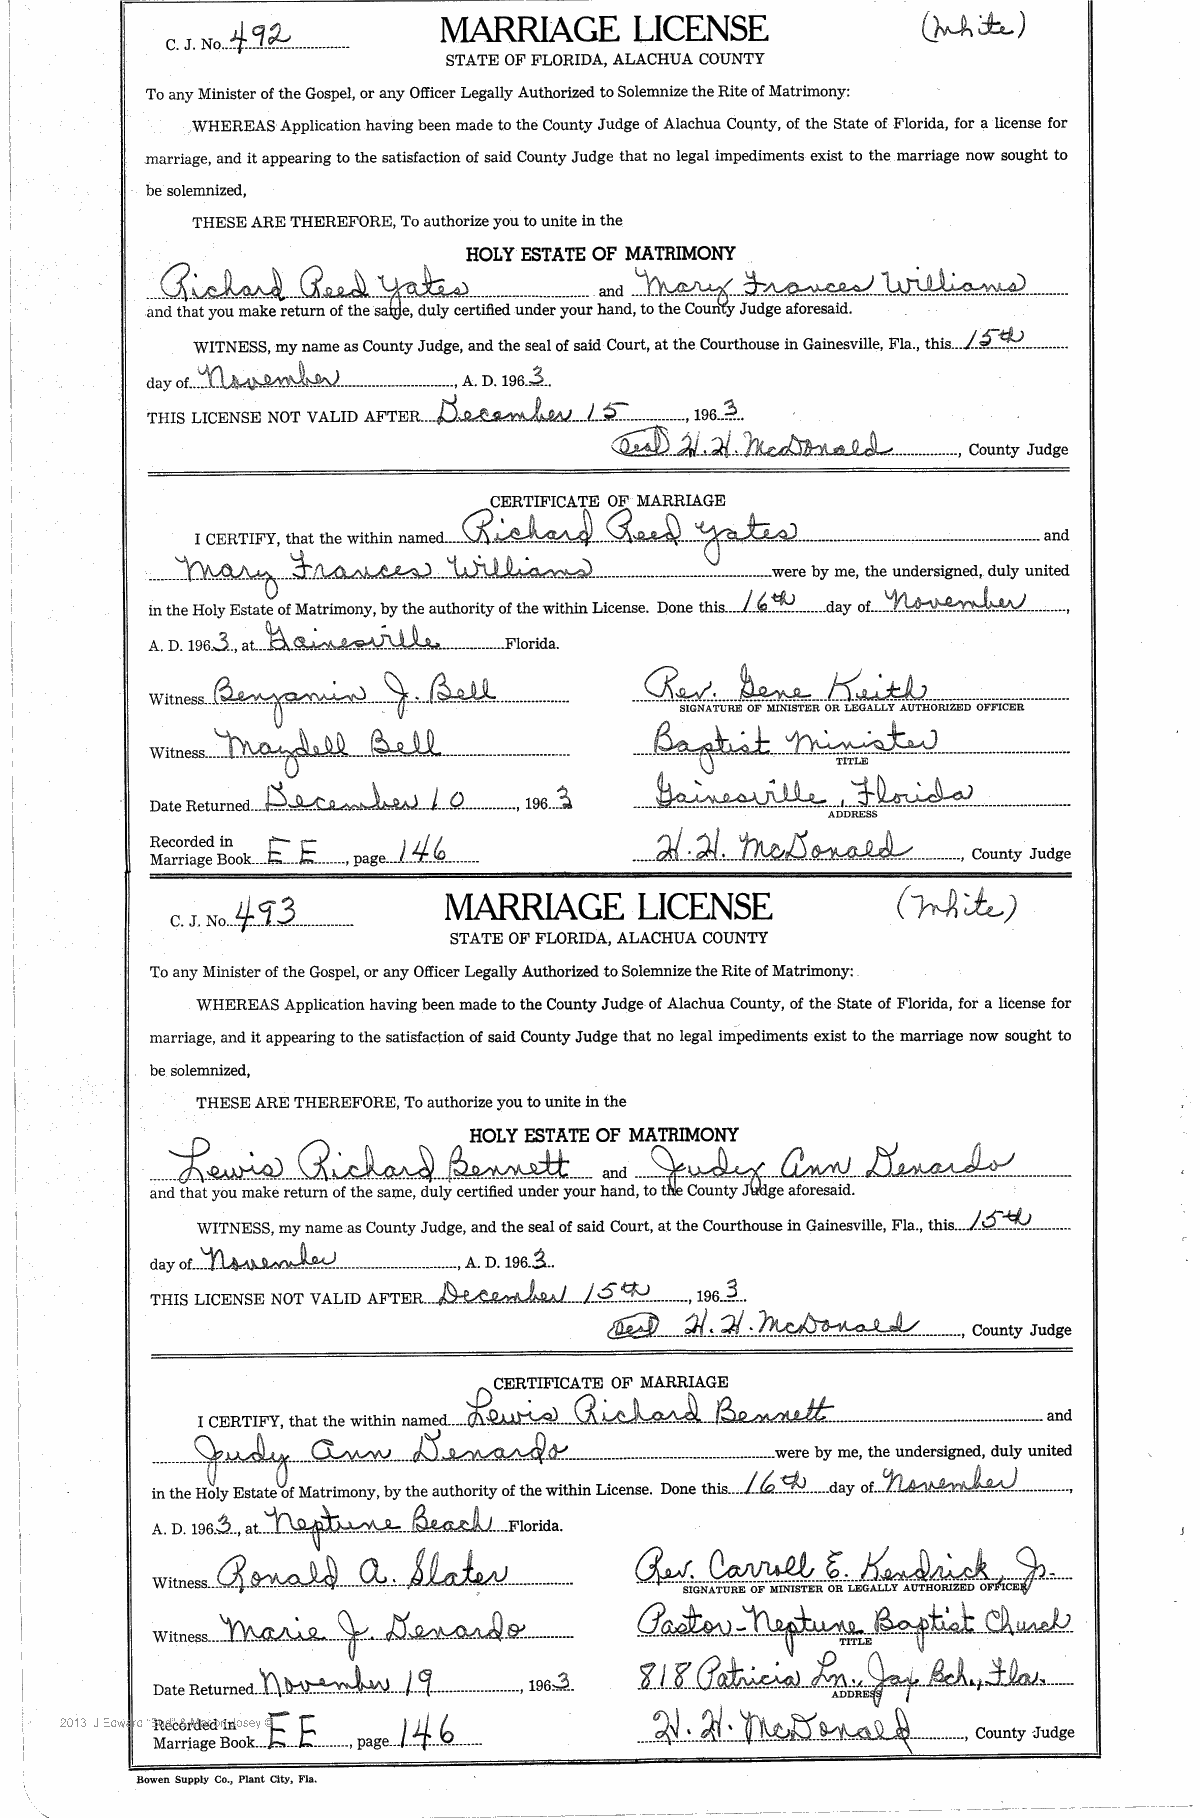 C. J. No. 492 MARRIAGE LICENSE (White)
STATE OF FLORIDA, ALACHUA COUNTY
To any Minister of the Gospel, or any Officer Legally Authorized to Solemnize the Rite of Matrimony:
WHEREAS Application having been made to the County Judge of Alachua County, of the State of Florida, for a license for
marriage, and it appearing to the satisfaction of said County Judge that no legal impediments exist to the marriage now sought to
be solemnized,
THESE ARE THEREFORE, To authorize you to unite in the
HOLY ESTATE OF MATRIMONY
Richard Reed Yates and Mary Frances Williams
and that you make return of the same, duly certified under your hand, to the County Judge aforesaid.
WITNESS, my name as County Judge, and the seal of said Court, at the Courthouse in Gainesville, Fla., this 15th
day of November, A. D. 1963.
THIS LICENSE NOT VALID AFTER December 15, 1963.
Seal H. H. McDonald, County Judge
CERTIFICATE OF MARRIAGE
I CERTIFY, that the within named Richard Reed Yates and
Mary Frances Williams were by me, the undersigned, duly united
in the Holy Estate of Matrimony, by the authority of the within License. Done this 16th day of November,
A. D. 1963, at Gainesville Florida.
Witness Benjamin J. Bell Rev. Gene Keith
SIGNATURE OF MINISTER OR LEGALLY AUTHORIZED OFFICER
Witness Maydell Bell Baptist Minister
TITLE
Date Returned December 10, 1963 Gainesville, Florida
ADDRESS
Recorded in
Marriage Book EE, page 146 H. H. McDonald, County Judge
C. J. No. 493 MARRIAGE LICENSE (White)
STATE OF FLORIDA, ALACHUA COUNTY
To any Minister of the Gospel, or any Officer Legally Authorized to Solemnize the Rite of Matrimony:
WHEREAS Application having been made to the County Judge of Alachua County, of the State of Florida, for a license for
marriage, and it appearing to the satisfaction of said County Judge that no legal impediments exist to the marriage now sought to
be solemnized,
THESE ARE THEREFORE, To authorize you to unite in the
HOLY ESTATE OF MATRIMONY
Lewis Richard Bennett and Judy Ann Denardo
and that you make return of the same, duly certified under your hand, to the County Judge aforesaid.
WITNESS, my name as County Judge, and the seal of said Court, at the Courthouse in Gainesville, Fla., this 15th
day of November, A. D. 1963.
THIS LICENSE NOT VALID AFTER December 15th, 1963.
Seal H. H. McDonald, County Judge
CERTIFICATE OF MARRIAGE
I CERTIFY, that the within named Lewis Richard Bennett and
Judy Ann Denardo were by me, the undersigned, duly united
in the Holy Estate of Matrimony, by the authority of the within License. Done this 16th day of November,
A. D. 1963, at Neptune Beach Florida.
Witness Ronald A. Slater Rev. Carroll E. Kendrick, Jr.
SIGNATURE OF MINISTER OR LEGALLY AUTHORIZED OFFICER
Witness Marie J. Denardo Pastor-Neptune Baptist Church
TITLE
Date Returned November 19, 1963 818 Patricia Ln., Jax Bch., Fla.
ADDRESS
2013 J Edward Recorded in
Marriage Book EE, page 146 H. H. McDonald, County Judge
Bowen Supply Co., Plant City, Fla.